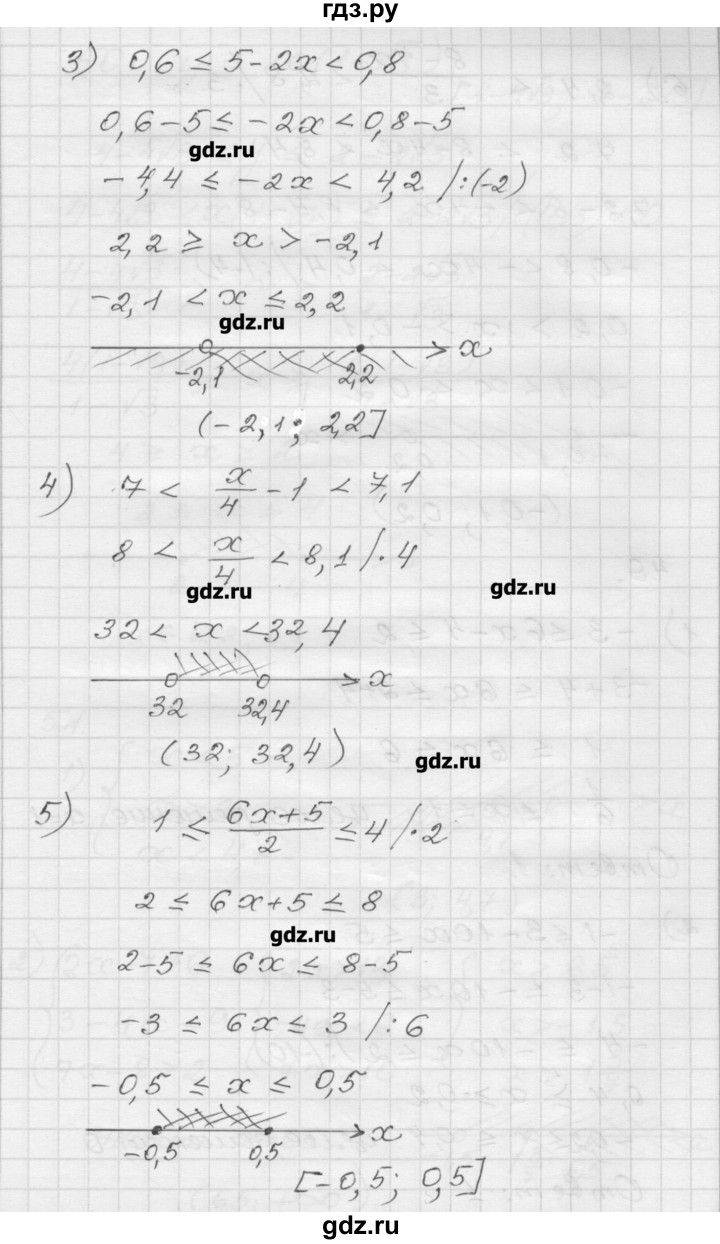 гдз.ру
3) 0,6 ≤ 5-2x < 0,8
0,6-5 ≤ -2x < 0,8-5
gdz.ru
-4,4 ≤ -2x < 4,2 /:(-2)
2,2 ≥ x > -2,1
-2,1 < x ≤ 2,2
gdz.ru
x
-2,1 2,2
(-2,1; 2,2]
4) 7 < x/4 - 1 < 7,1
8 < x/4 < 8,1 /·4
gdz.ru gdz.ru
32 < x < 32,4
x
32 32,4
(32; 32,4)
gdz.ru
5) 1 ≤ (6x+5)/2 ≤ 4 /·2
2 ≤ 6x+5 ≤ 8
gdz.ru
2-5 ≤ 6x ≤ 8-5
-3 ≤ 6x ≤ 3 /:6
-0,5 ≤ x ≤ 0,5
x
-0,5 0,5
[-0,5; 0,5]
gdz.ru